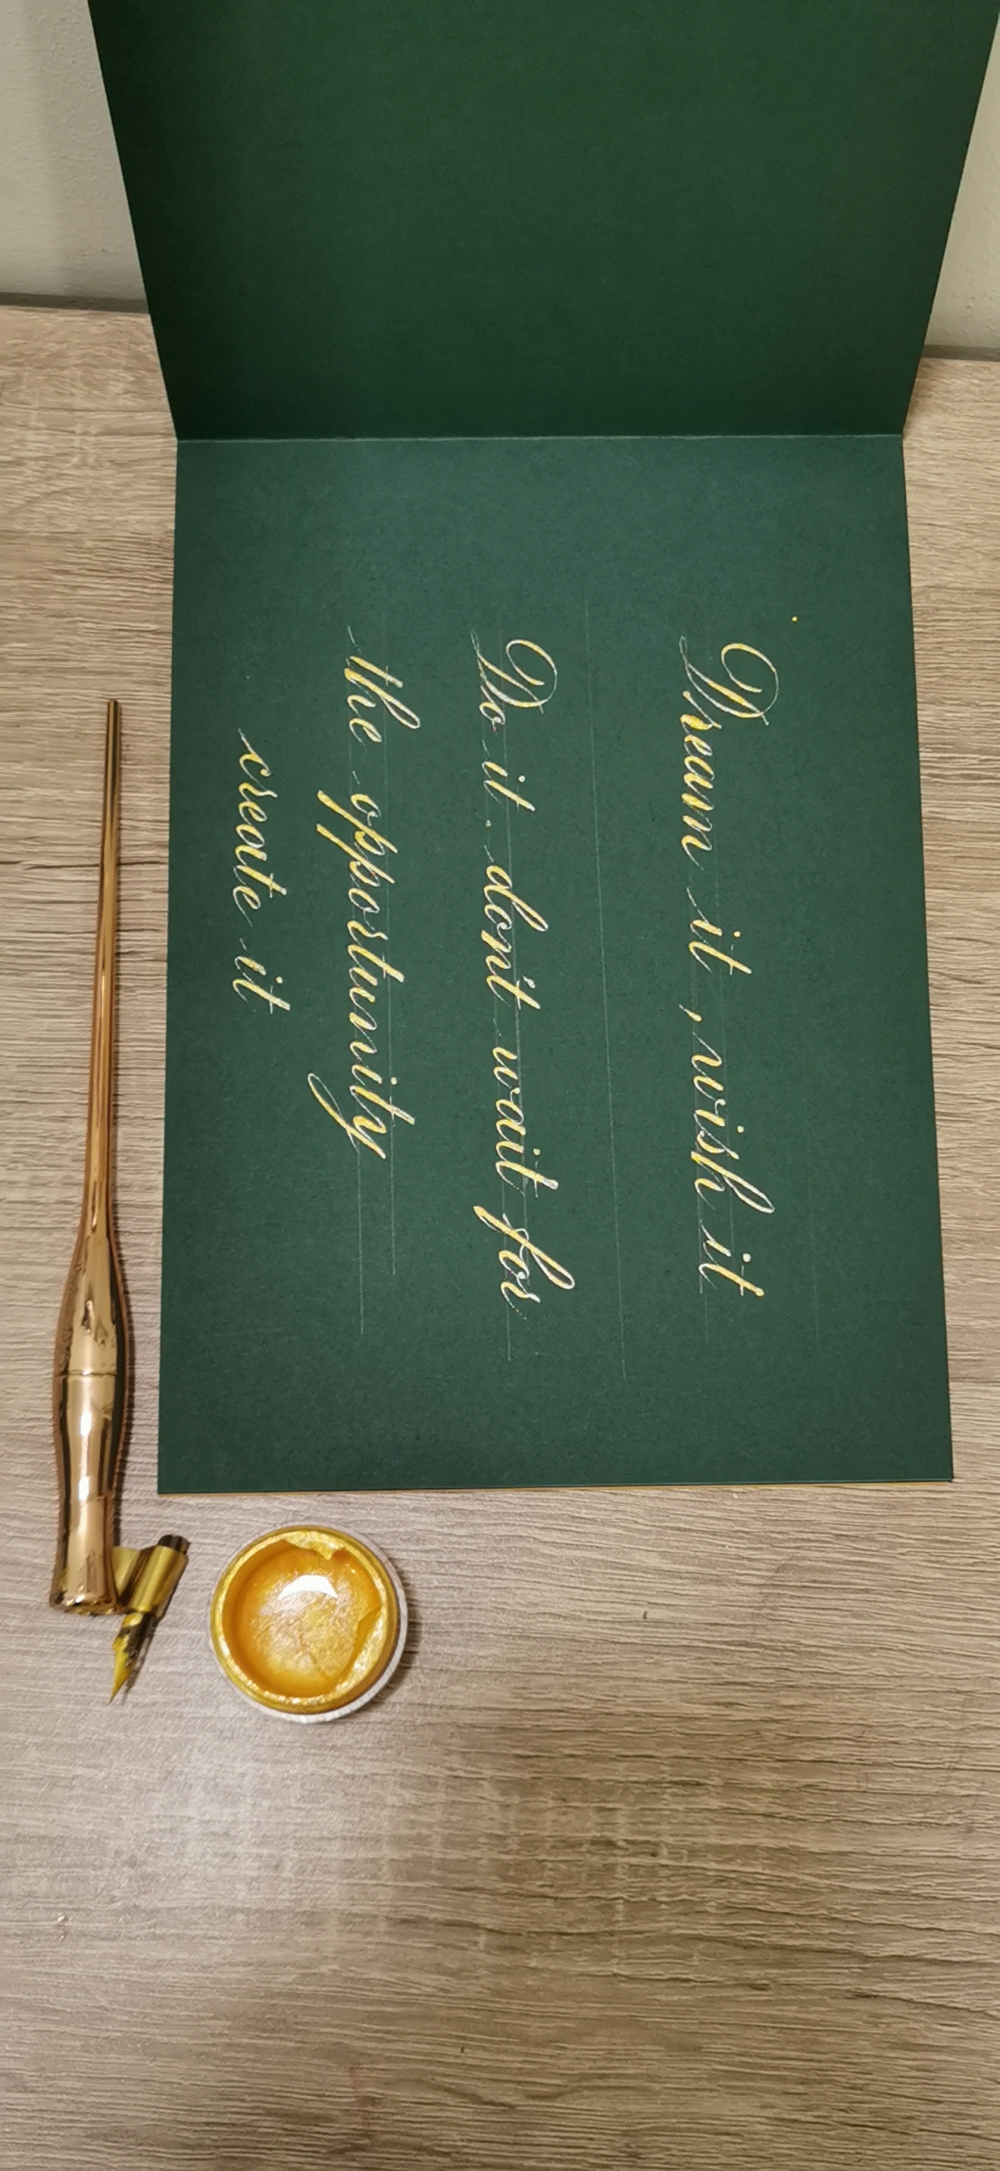 Dream it , wish it
Do it . don't wait for
the opportunity
create it